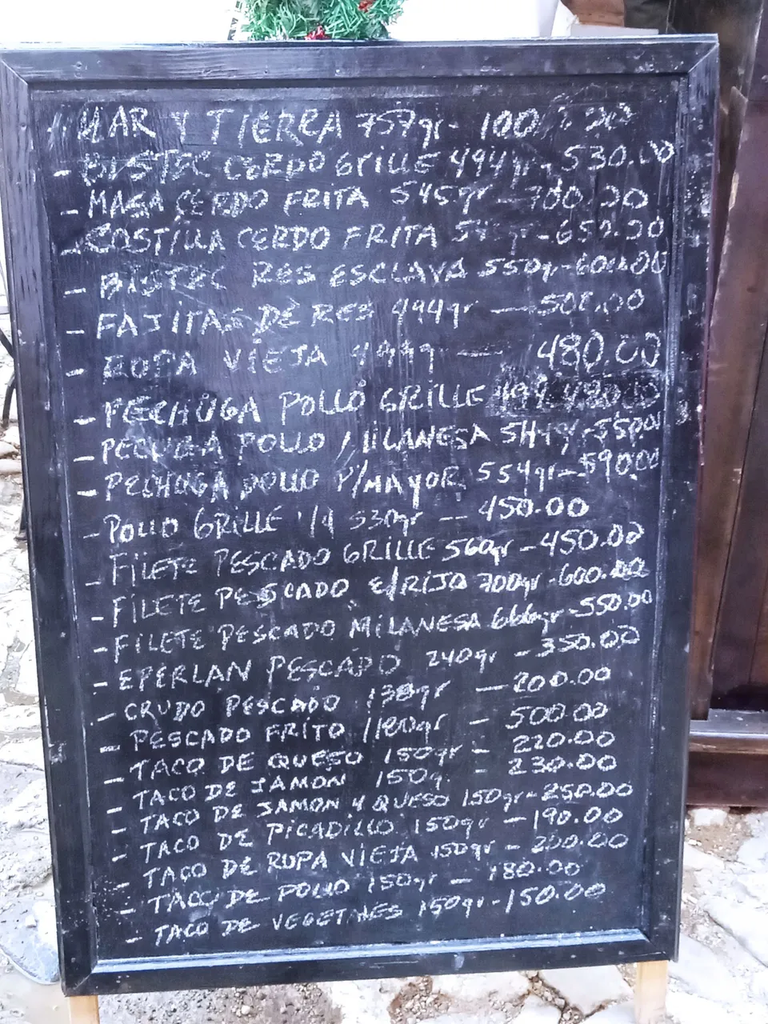 - MAR Y TIERRA 757gr- 100
- BISTEC CERDO GRILLE 494gr-530.00
- MASA CERDO FRITA 545gr -700.00
- COSTILLA CERDO FRITA -650.00
- BISTEC RES ESCLAVA 550gr-600.00
- FAJITAS DE RES 494gr -500.00
- ROPA VIEJA 494g - 480.00
- PECHUGA POLLO GRILLE 494 480.00
- PECHUGA POLLO MILANESA 544gr-550.00
- PECHUGA POLLO P/MAYOR 554gr-590.00
- POLLO GRILLE 1/4 530gr - 450.00
- FILETE PESCADO GRILLE 560gr -450.00
- FILETE PESCADO E/RIJO 700gr-600.00
- FILETE PESCADO MILANESA 666gr-550.00
- EPERLAN PESCADO 240gr -350.00
- CRUDO PESCADO 138gr - 200.00
- PESCADO FRITO 1180gr - 500.00
- TACO DE QUESO 150gr - 220.00
- TACO DE JAMON 150g - 230.00
- TACO DE JAMON Y QUESO 150gr-250.00
- TACO DE PICADILLO 150gr -190.00
- TACO DE ROPA VIEJA 150gr - 200.00
- TACO DE POLLO 150gr - 180.00
- TACO DE VEGETALES 150gr-150.00